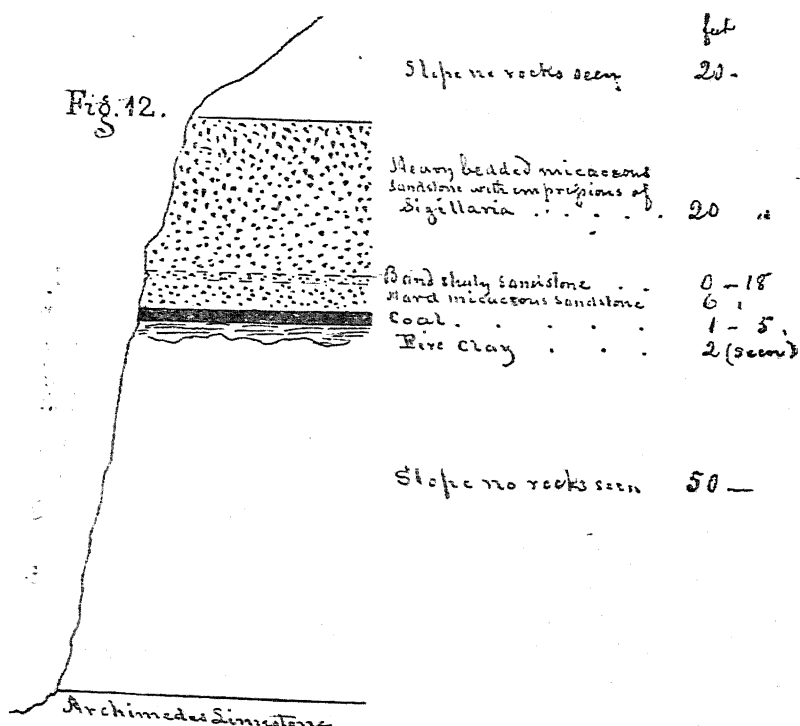 feet
Slope no rocks seen 20 -
Fig. 12.
Heavy bedded micaceous
Sandstone with impressions of
Sigillaria . . . . . 20 "
Band shaly Sandstone . . 0 - 18
Hard micaceous Sandstone 6 "
Coal . . . . . . 1 - 5 "
Fire Clay . . . 2 (seen)
Slope no rocks seen 50 —
Archimedes Limestone